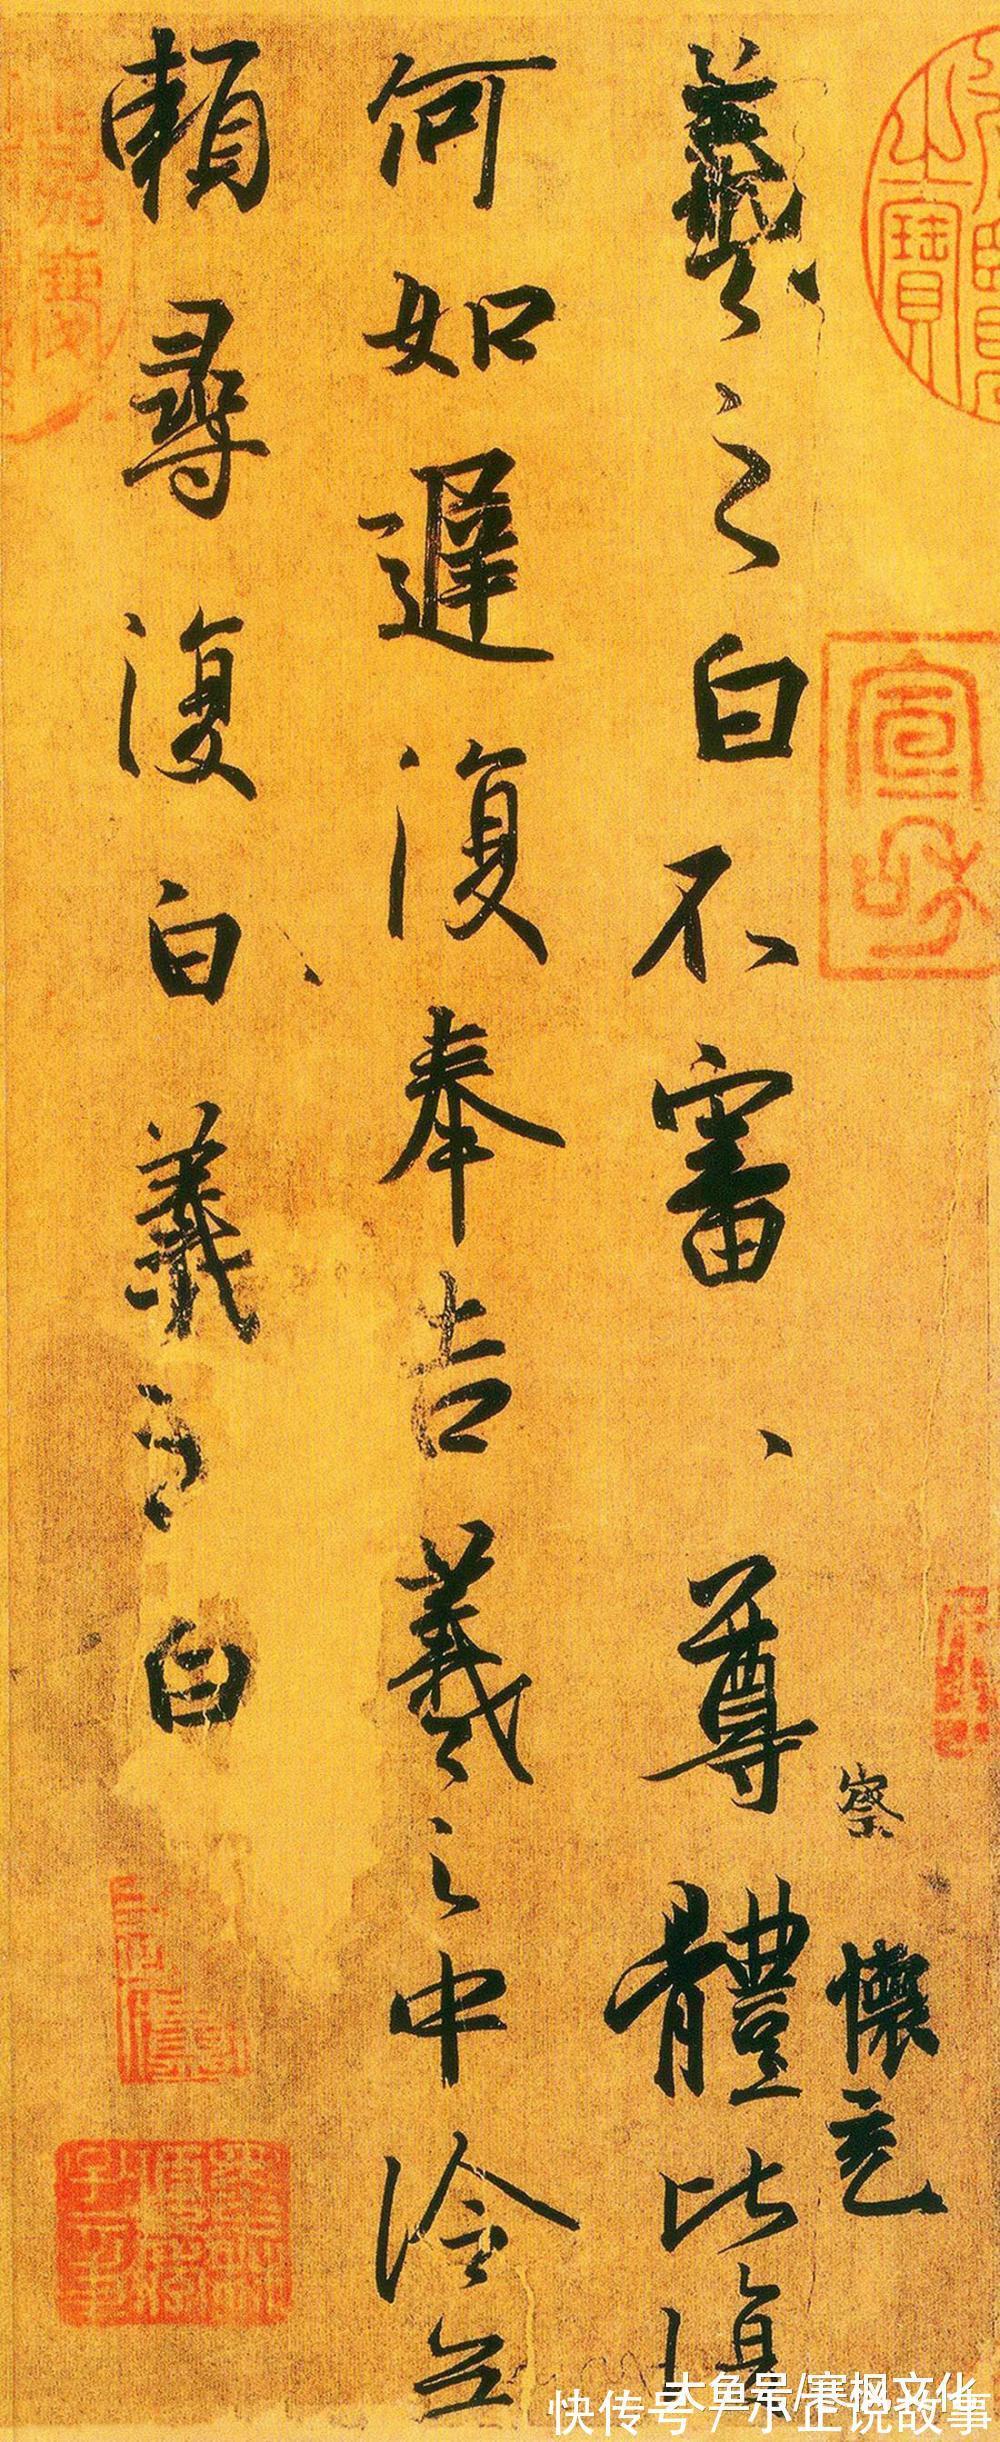 察 懷充
羲之白不審尊體比復
何如遲復奉告羲之中冷無
賴尋復白羲之白
宣和
之寶
大鱼号/寒枫文化
快传号 / 小正说故事